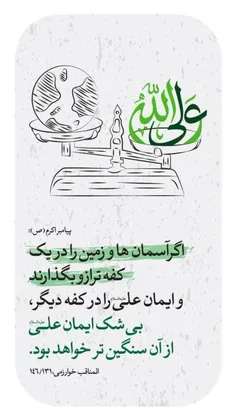 علی ولی الله
پیامبر اکرم (ص):
اگر آسمان ها و زمین را در یک
کفه ترازو بگذارند
و ایمان علی را در کفه دیگر،
بی شک ایمان علی
از آن سنگین تر خواهد بود.
المناقب خوارزمی، ۱۳۱/۱۴۶